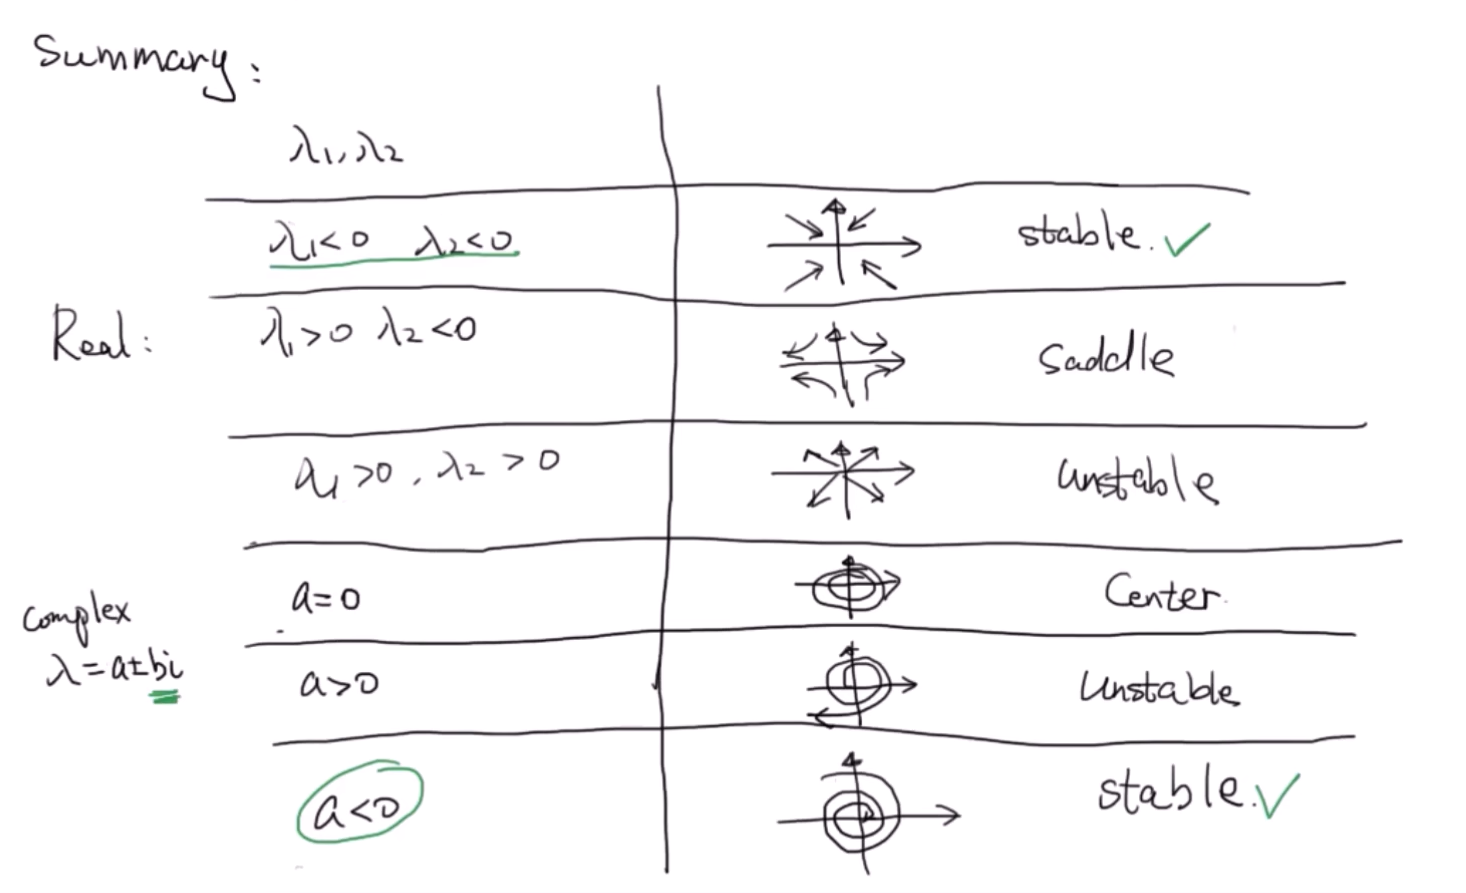 Summary:
λ1, λ2
λ1<0 λ2<0 stable. ✓
Real: λ1>0 λ2<0 Saddle
λ1>0, λ2>0 Unstable
a=0 Center.
Complex
λ=a±bi
a>0 Unstable
a<0 stable. ✓